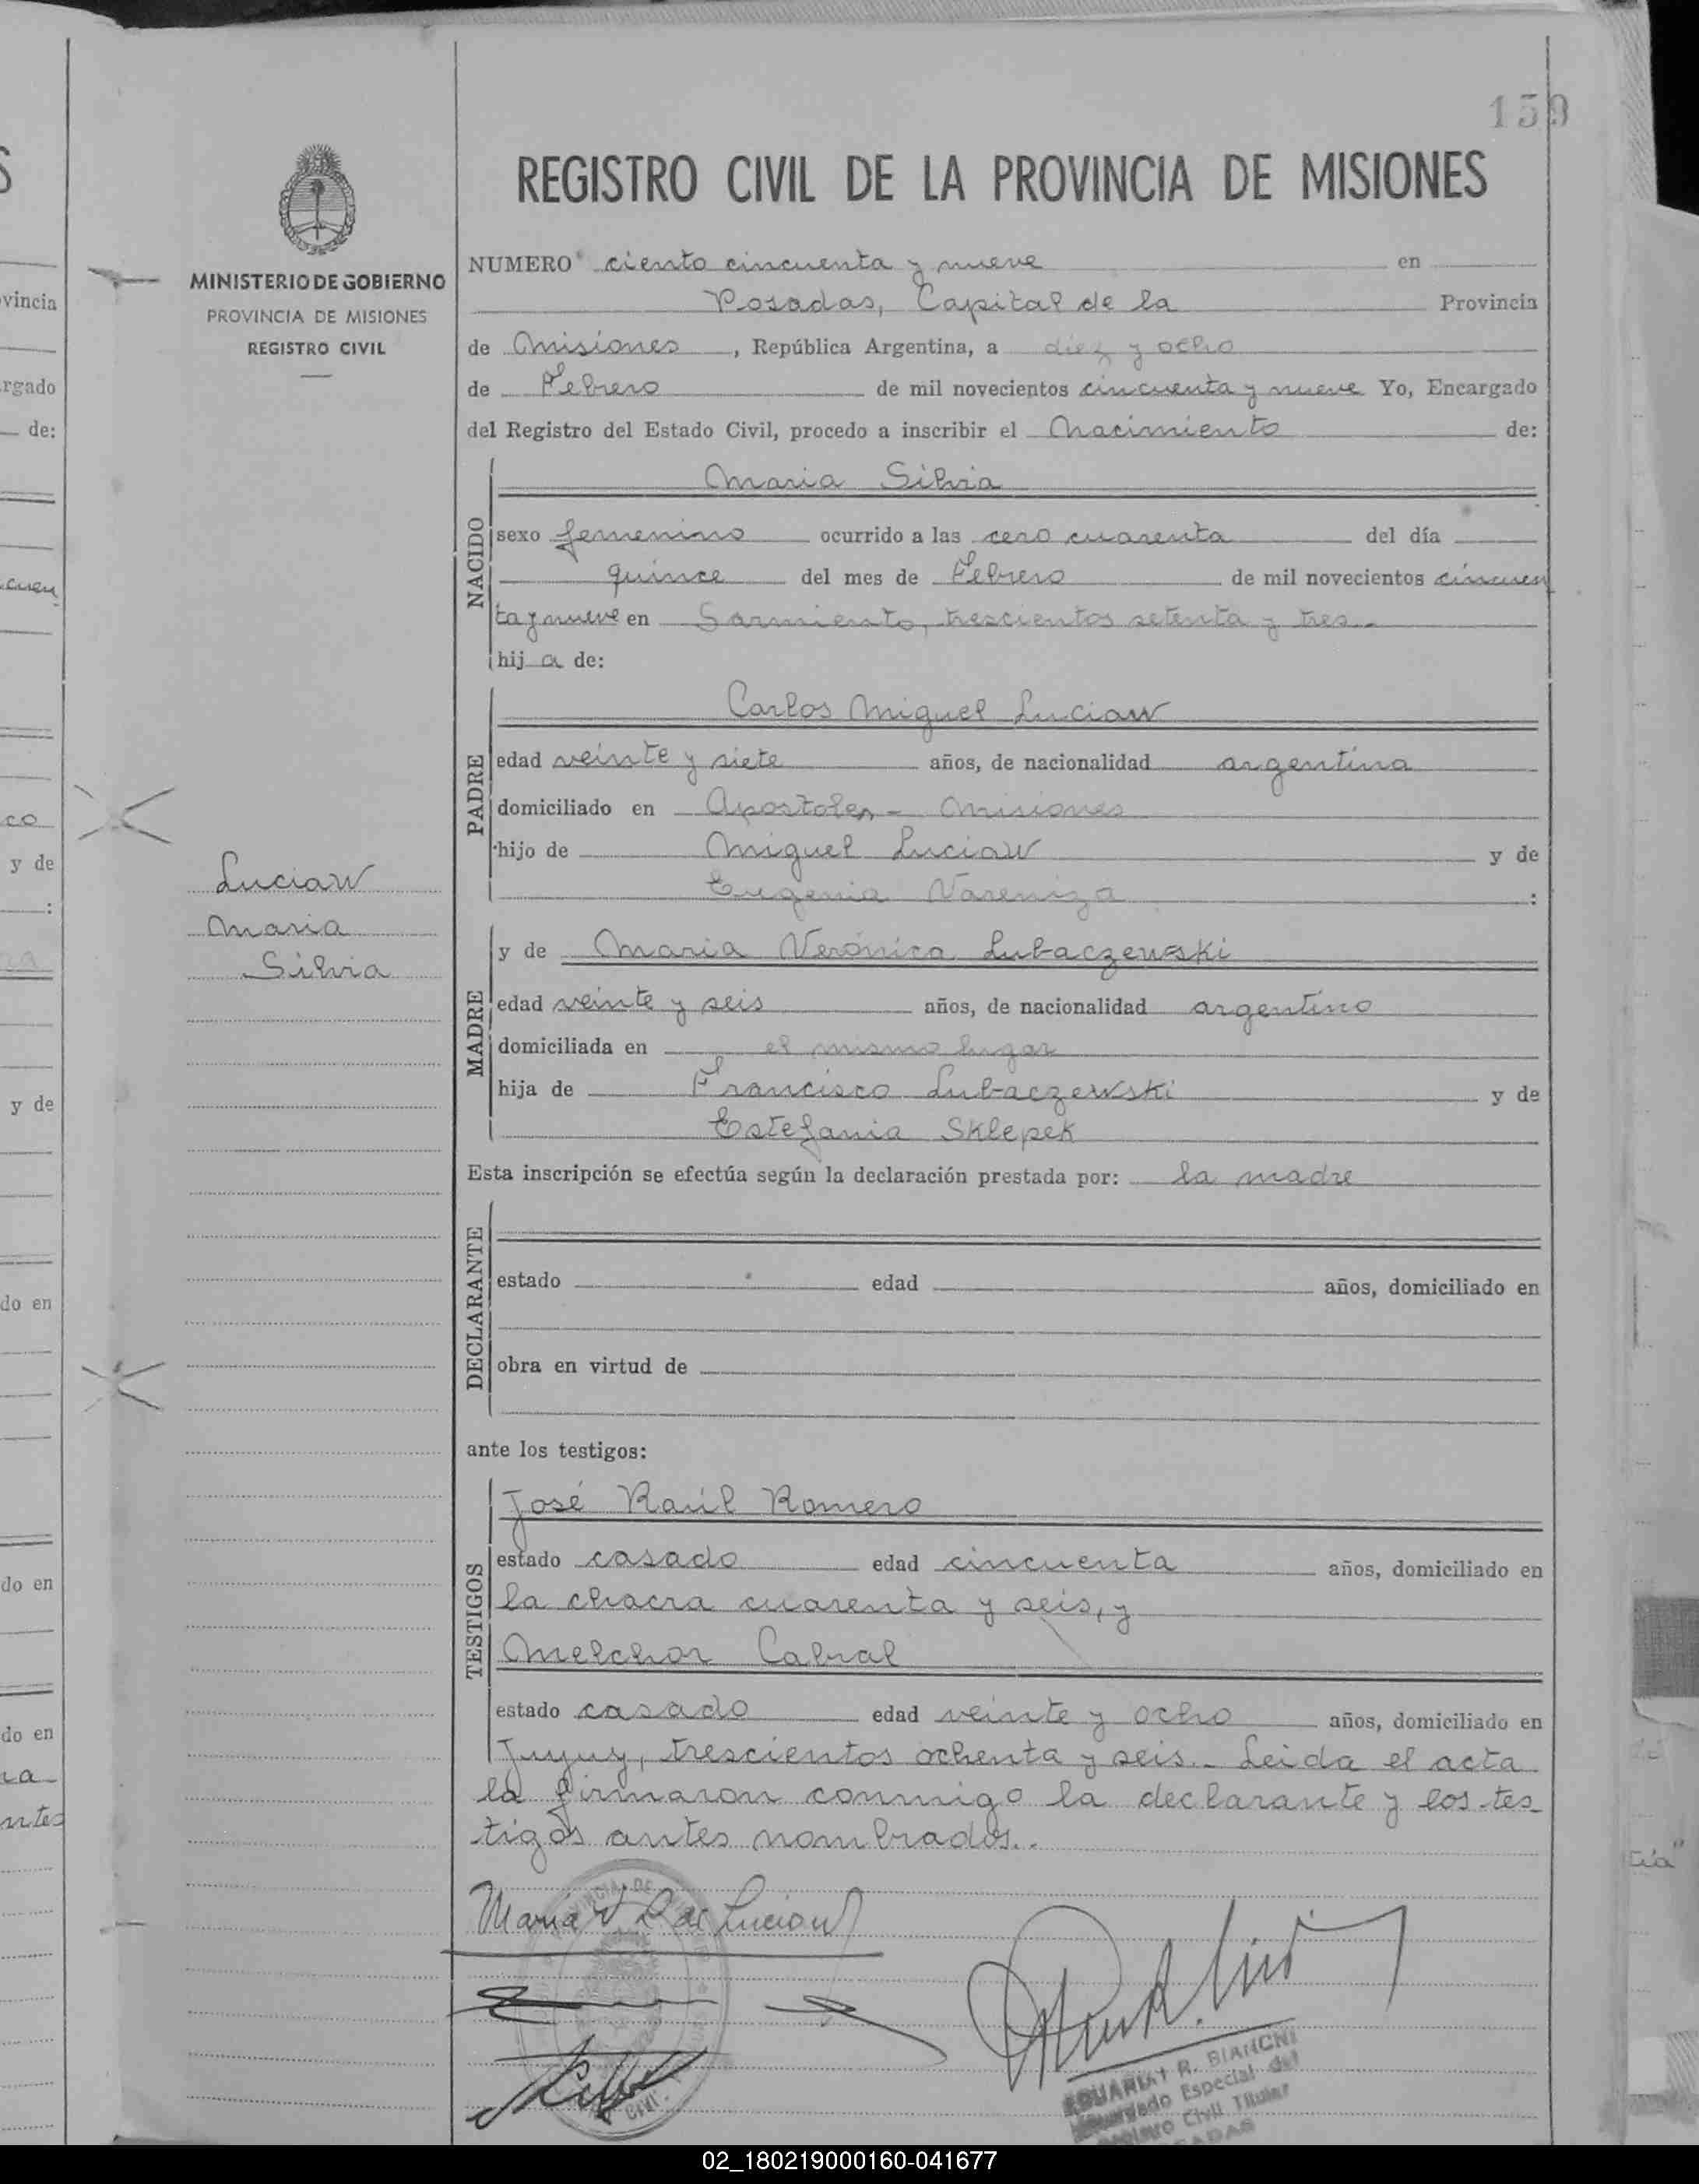 159
REGISTRO CIVIL DE LA PROVINCIA DE MISIONES
MINISTERIO DE GOBIERNO
PROVINCIA DE MISIONES
REGISTRO CIVIL
NUMERO ciento cincuenta y nueve en
Posadas, Capital de la Provincia
de Misiones, República Argentina, a diez y ocho
de Febrero de mil novecientos cincuenta y nueve Yo, Encargado
del Registro del Estado Civil, procedo a inscribir el Nacimiento de:
NACIDO
Maria Silvia
sexo femenino ocurrido a las cero cuarenta del día
quince del mes de Febrero de mil novecientos cincuen
ta y nueve en Sarmiento, trescientos setenta y tres.-
hij a de:
PADRE
Carlos Miguel Luciaw
edad veinte y siete años, de nacionalidad argentina
domiciliado en Apostoles - Misiones
hijo de Miguel Luciaw y de
Eugenia Vareniza :
Luciaw
Maria
Silvia
MADRE
y de Maria Verónica Lubaczewski
edad veinte y seis años, de nacionalidad argentino
domiciliada en el mismo lugar
hija de Francisco Lubaczewski y de
Estefania Sklepek
Esta inscripción se efectúa según la declaración prestada por: la madre
DECLARANTE
estado edad años, domiciliado en
obra en virtud de
ante los testigos:
TESTIGOS
José Raúl Romero
estado casado edad cincuenta años, domiciliado en
la chacra cuarenta y seis, y
Melchor Cabral
estado casado edad veinte y ocho años, domiciliado en
Jujuy, trescientos ochenta y seis.- Leida el acta
la firmaron conmigo la declarante y los tes-
tigos antes nombrados.-
Maria V L de Luciaw
R. BIANCHI
Especial del
Civil Titular
02_180219000160-041677